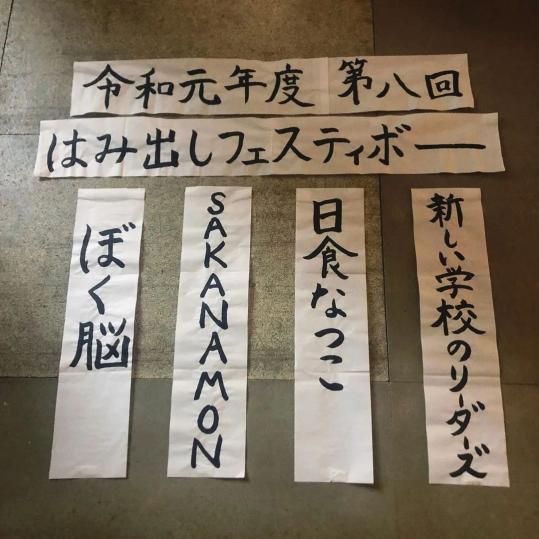 令和元年度 第八回
はみ出しフェスティボー
新しい学校のリーダーズ
日食なつこ
SAKANAMON
ぼく脳